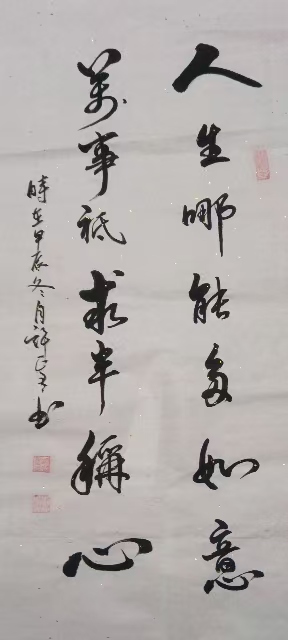 人生哪能多如意
萬事祗求半稱心
時在甲辰冬月許
書